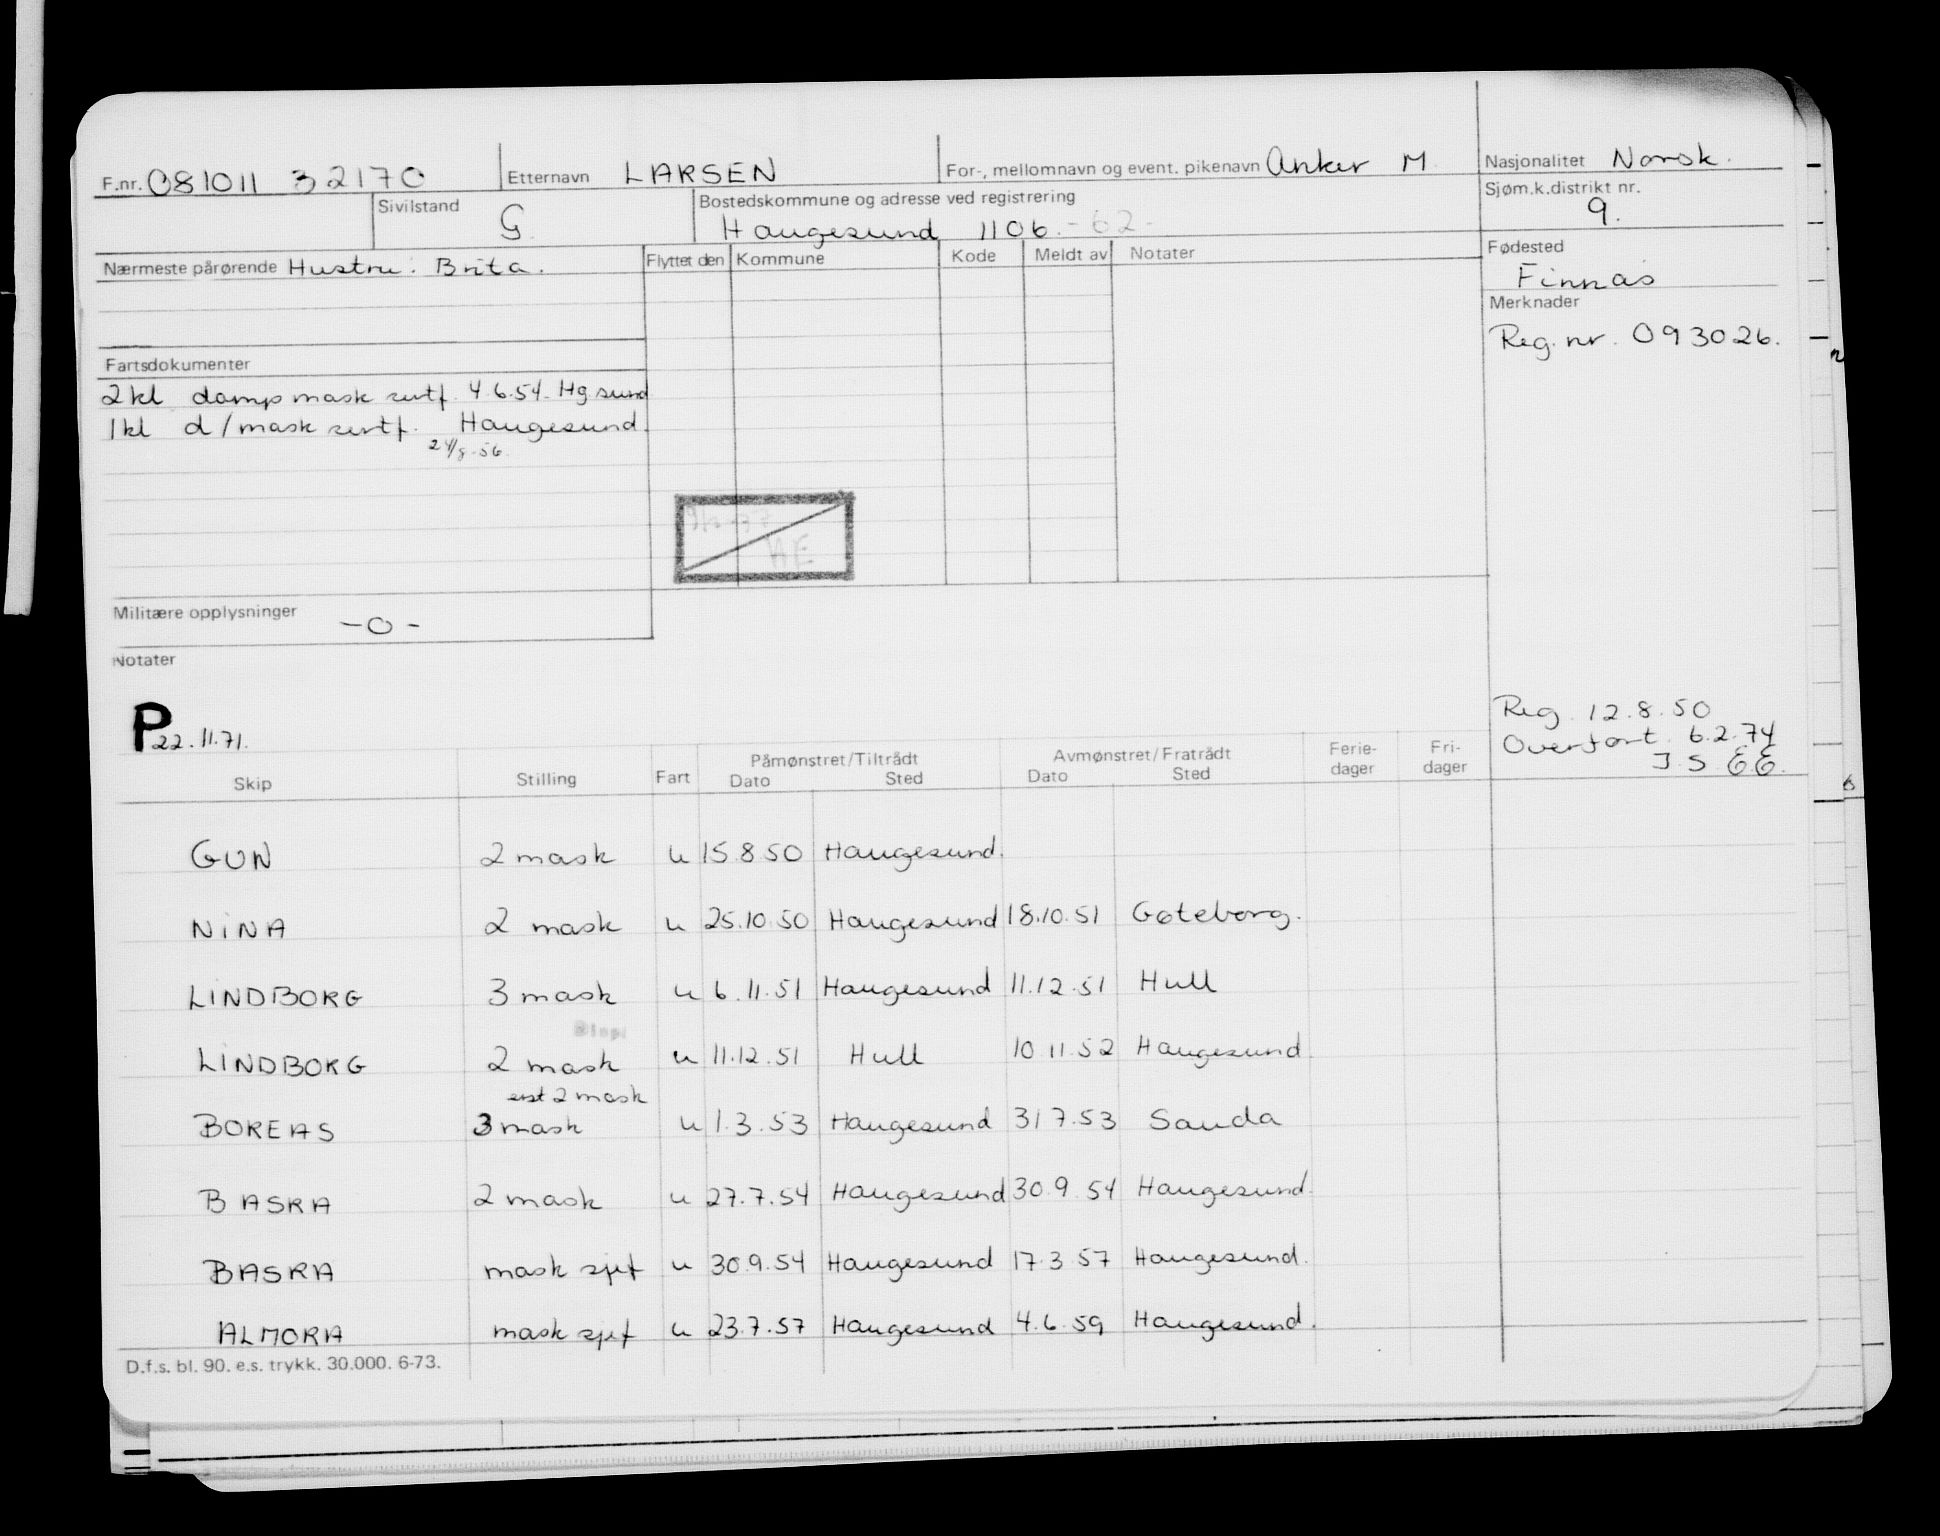 F.nr. 081011 32170 Etternavn LARSEN For-, mellomnavn og event. pikenavn Anker M Nasjonalitet Norsk.
Sivilstand G Bostedskommune og adresse ved registrering Haugesund 1106.-62- Sjøm.k.distrikt nr. 9.
Nærmeste pårørende Hustru. Brita. Flyttet den Kommune Kode Meldt av Notater Fødested
Finnås
Merknader
Reg. nr. 093026.
Fartsdokumenter
2kl damp mask sertf. 4.6.54. Hg sund
1kl d/mask sertf. Haugesund.
24/8-56.
HE
Militære opplysninger -0-
Notater
P 22.11.71.
Reg. 12.8.50
Overført. 6.2.74
J.S. E.E.
Skip Stilling Fart Påmønstret/Tiltrådt Dato Sted Avmønstret/Fratrådt Dato Sted Ferie-dager Fri-dager
GUN 2 mask u 15 8 50 Haugesund.
NINA 2 mask u 25.10.50 Haugesund 18.10.51 Gøteborg.
LINDBORG 3 mask u 6.11.51 Haugesund 11.12.51 Hull
LINDBORG 2 mask u 11.12.51 Hull 10 11.52 Haugesund.
erst 2 mask
BOREAS 3 mask u 1.3.53 Haugesund 31 7.53 Sauda
BASRA 2 mask u 27.7.54 Haugesund 30.9.54 Haugesund.
BASRA mask sjef u 30.9.54 Haugesund 17.3 57 Haugesund.
ALMORA mask sjef u 23.7.57 Haugesund 4.6.59 Haugesund.
D.f.s. bl. 90. e.s. trykk. 30.000. 6-73.